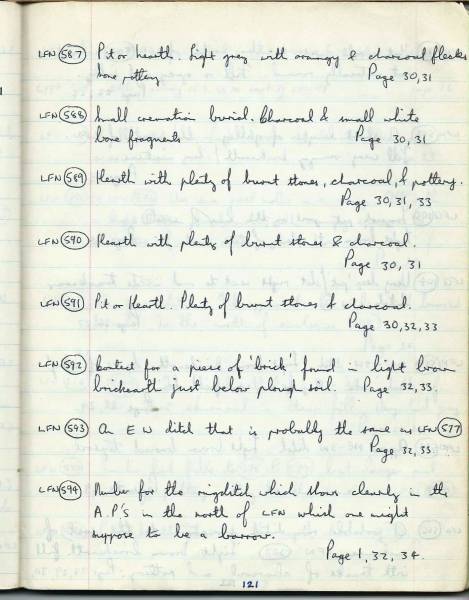 LFN 587 Pit or hearth. Light grey with orangey & charcoal flecks
bone pottery
Page 30,31
LFN 588 Small cremation burial. Charcoal & small white
bone fragments Page 30,31
LFN 589 Hearth with plenty of burnt stones, charcoal, & pottery.
Page 30,31,33
LFN 590 Hearth with plenty of burnt stones & charcoal.
Page 30,31
LFN 591 Pit or Hearth. Plenty of burnt stones & charcoal.
Page 30,32,33
LFN 592 Context for a piece of 'brick' found in light brown
brickearth just below plough soil. Page 32,33.
LFN 593 An E W ditch that is probably the same as LFN 577
Page 32,33.
LFN 594 Number for the ringditch which shows clearly in the
A.P'S in the north of LFN which one might
suppose to be a barrow.
Page 1, 32, 34.
121